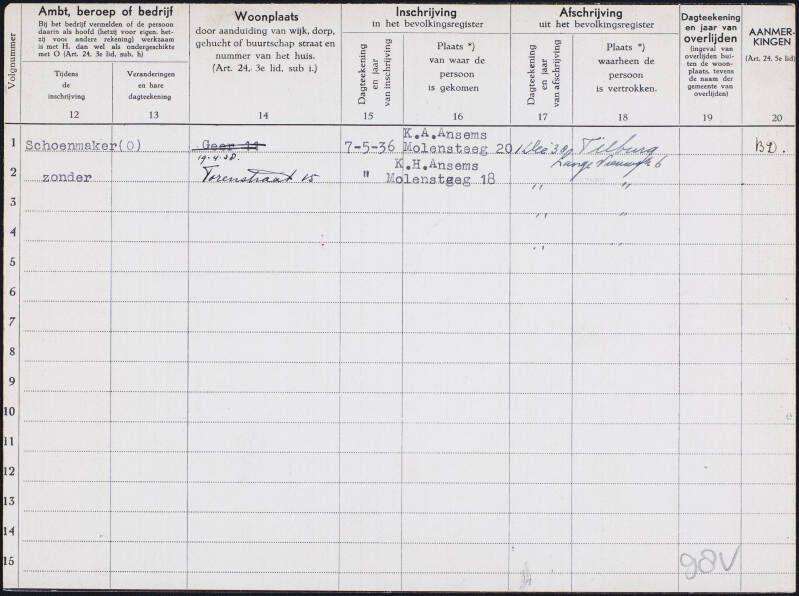 Volgnummer
Ambt, beroep of bedrijf
Bij het bedrijf vermelden of de persoon
daarin als hoofd (hetzij voor eigen, het-
zij voor andere rekening) werkzaam
is met H. dan wel als ondergeschikte
met O (Art. 24. 3e lid. sub. h)
Tijdens
de
inschrijving
Veranderingen
en hare
dagteekening
Woonplaats
door aanduiding van wijk, dorp,
gehucht of buurtschap straat en
nummer van het huis.
(Art. 24, 3e lid. sub i.)
Inschrijving
in het bevolkingsregister
Dagteekening
en jaar
van inschrijving
Plaats *)
van waar de
persoon
is gekomen
Afschrijving
uit het bevolkingsregister
Dagteekening
en jaar
van afschrijving
Plaats *)
waarheen de
persoon
is vertrokken.
Dagteekening
en jaar van
overlijden
(ingeval van
overlijden bui-
ten de woon-
plaats, tevens
de naam der
gemeente van
overlijden)
AANMER-
KINGEN
(Art. 24, 5e lid)
12 13 14 15 16 17 18 19 20
K.A.Ansems
1 Schoenmaker(O) Geer 11 7-5-36 Molensteeg 20 1 Dec '38 Tilburg BD.
19-4-38. K.H.Ansems Lange 6
2 zonder Torenstraat 15 " Molensteeg 18 " "
3 " "
4 " "
5
6
7
8
9
10
11
12
13
14
15
98V